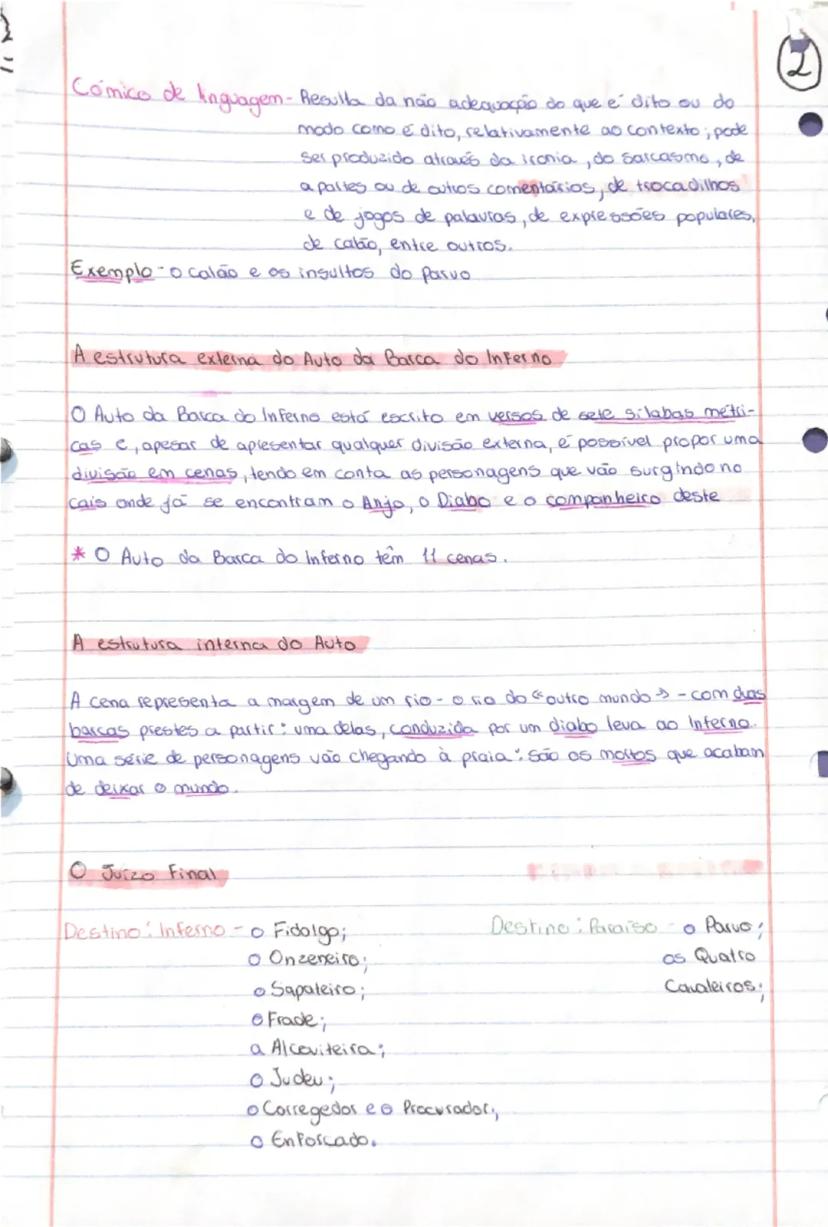 2
Cómico de linguagem - Resulta da não adequação do que é dito ou do
modo como é dito, relativamente ao contexto; pode
ser produzido através da ironia, do sarcasmo, de
apartes ou de outros comentários, de trocadilhos
e de jogos de palavras, de expressões populares,
de calão, entre outros.
Exemplo - o calão e os insultos do Parvo
A estrutura externa do Auto da Barca do Inferno
O Auto da Barca do Inferno está escrito em versos de sete sílabas métri-
cas e, apesar de apresentar qualquer divisão externa, é possível propor uma
divisão em cenas, tendo em conta as personagens que vão surgindo no
cais onde já se encontram o Anjo, o Diabo e o companheiro deste
* O Auto da Barca do Inferno têm 11 cenas.
A estrutura interna do Auto
A cena representa a margem de um rio - o rio do «outro mundo» - com duas
barcas prestes a partir: uma delas, conduzida por um diabo leva ao Inferno.
Uma série de personagens vão chegando à praia: são os mortos que acabam
de deixar o mundo.
O Juízo Final
Destino: Inferno - o Fidalgo; Destino: Paraíso - o Parvo;
o Onzeneiro; os Quatro
o Sapateiro; Cavaleiros;
o Frade;
a Alcoviteira;
o Judeu;
o Corregedor e o Procurador;
o Enforcado.